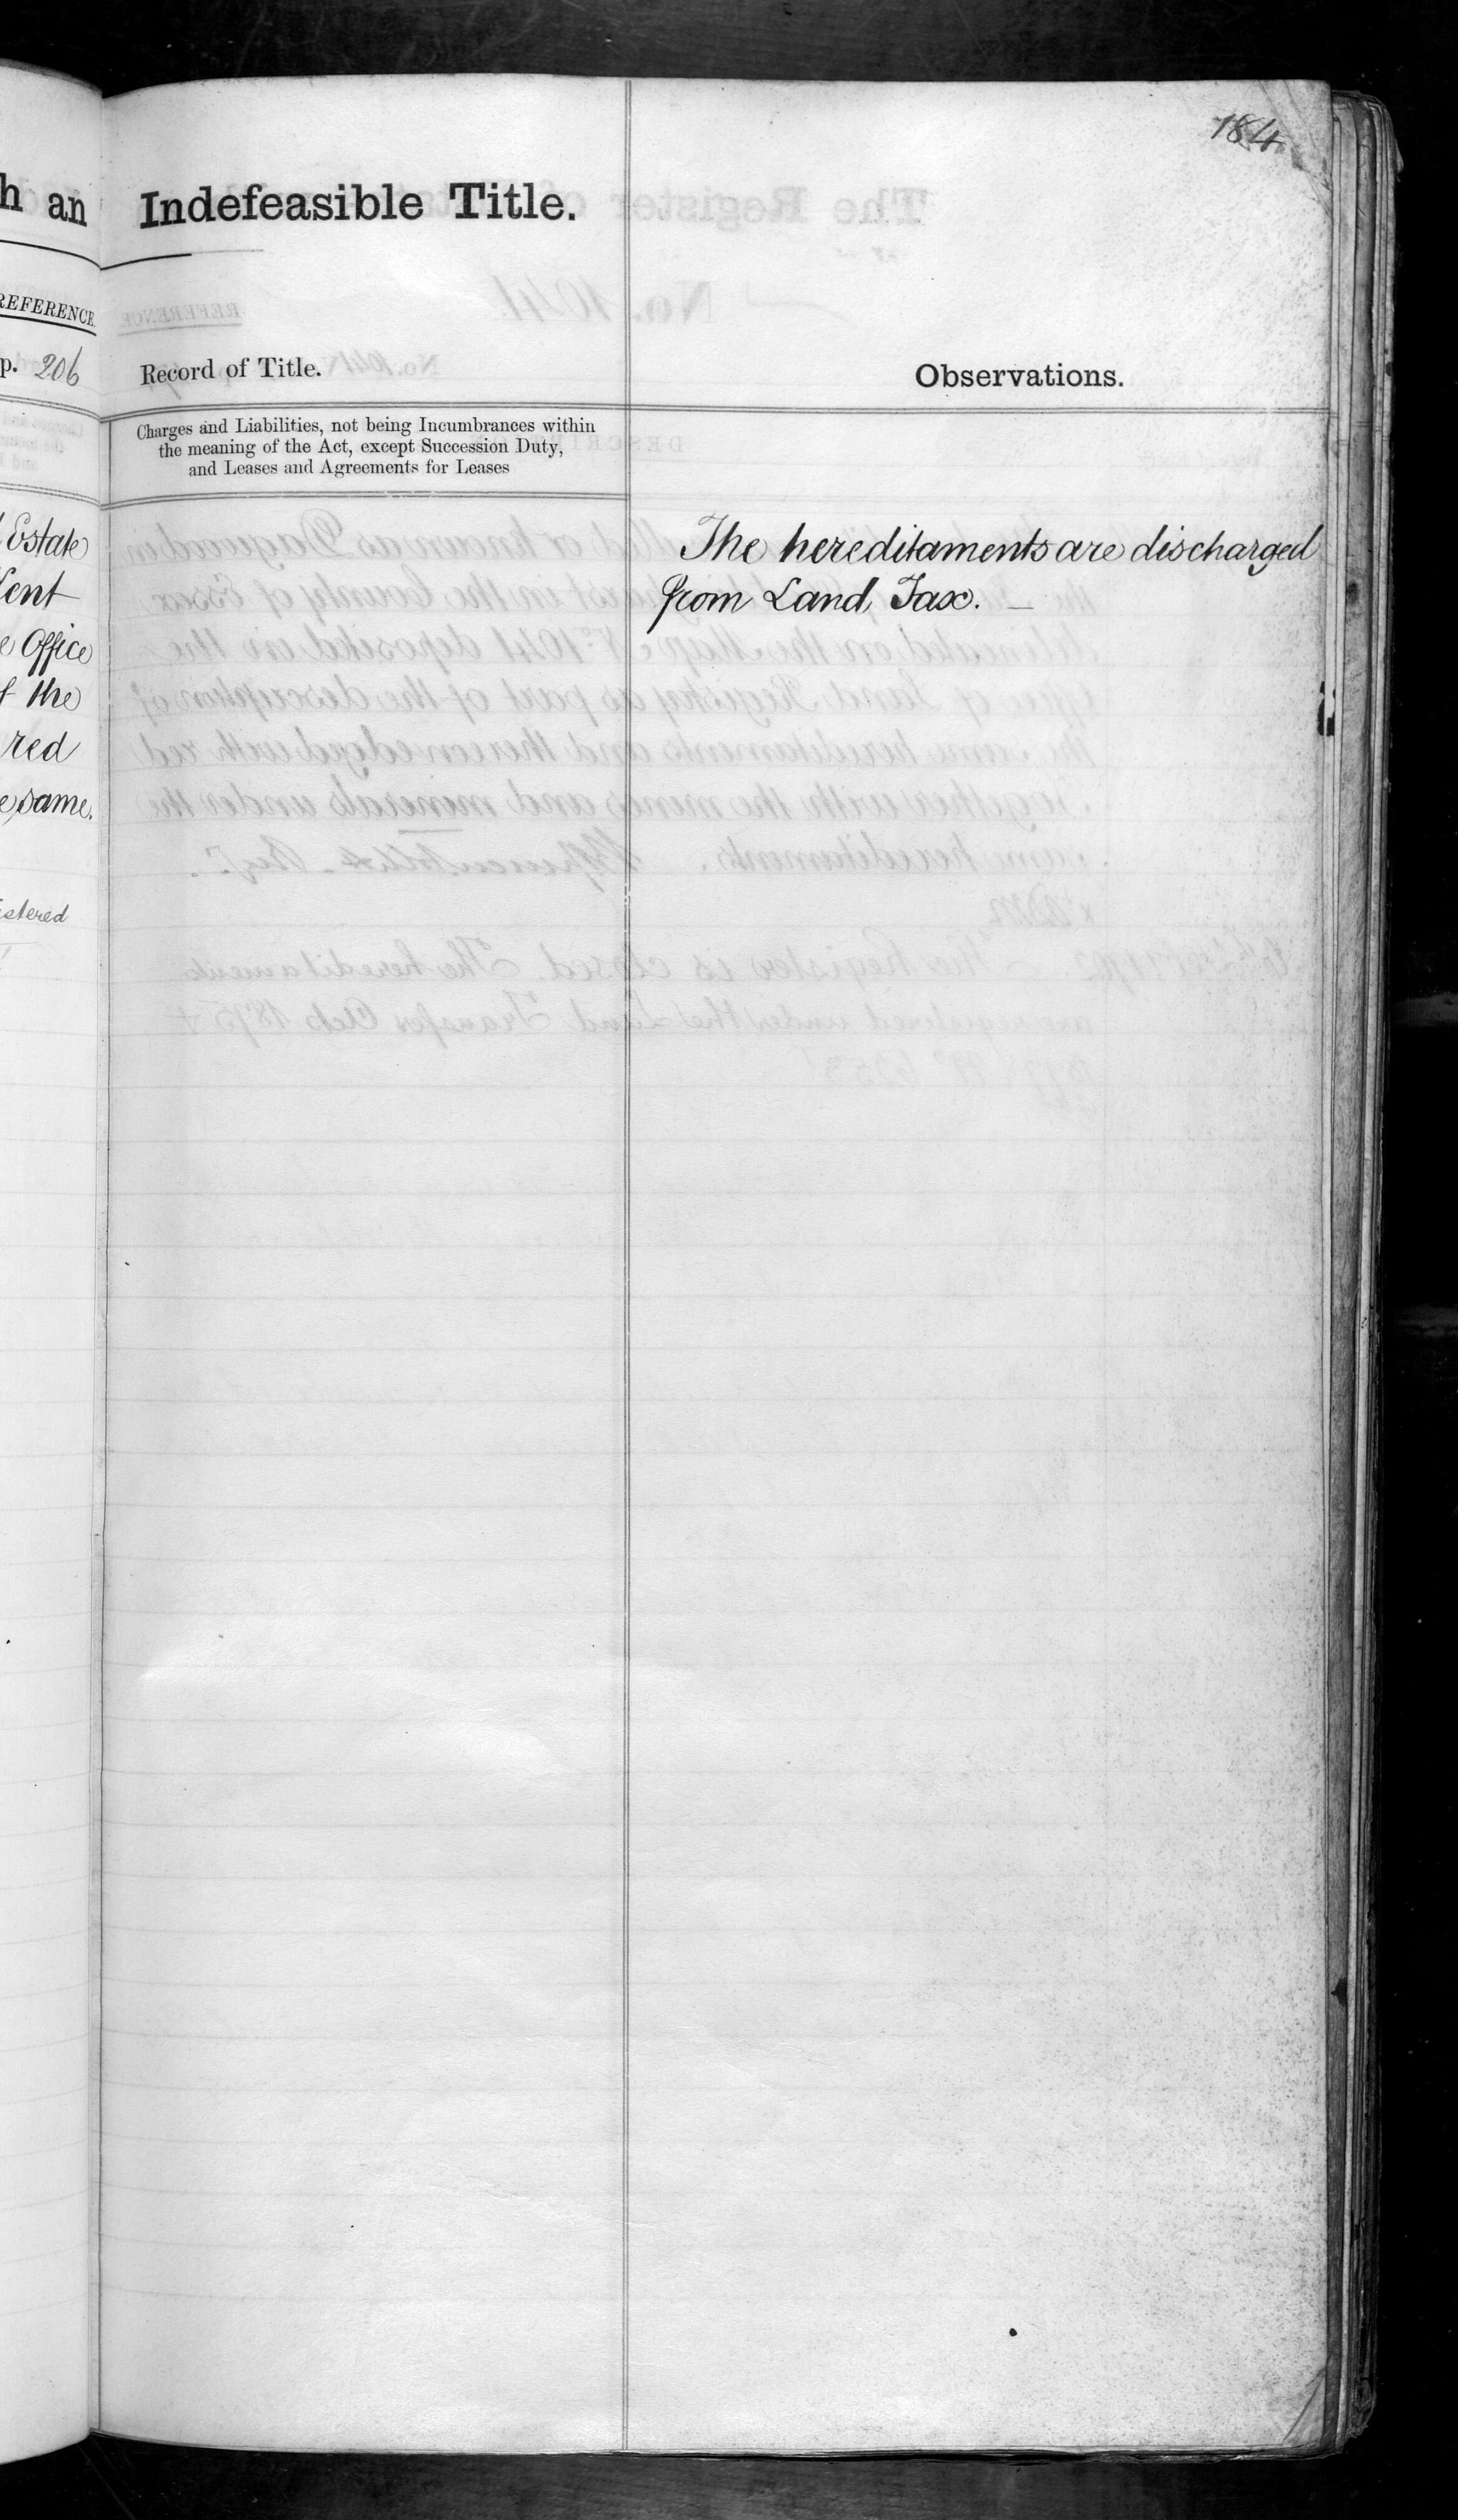 184
h an Indefeasible Title.
REFERENCE.
p. 206
Record of Title.
Observations.
Charges and Liabilities, not being Incumbrances within
the meaning of the Act, except Succession Duty,
and Leases and Agreements for Leases
Estate
ent
e Office
f the
red
e same.
istered
The hereditaments are discharged
from Land Tax.